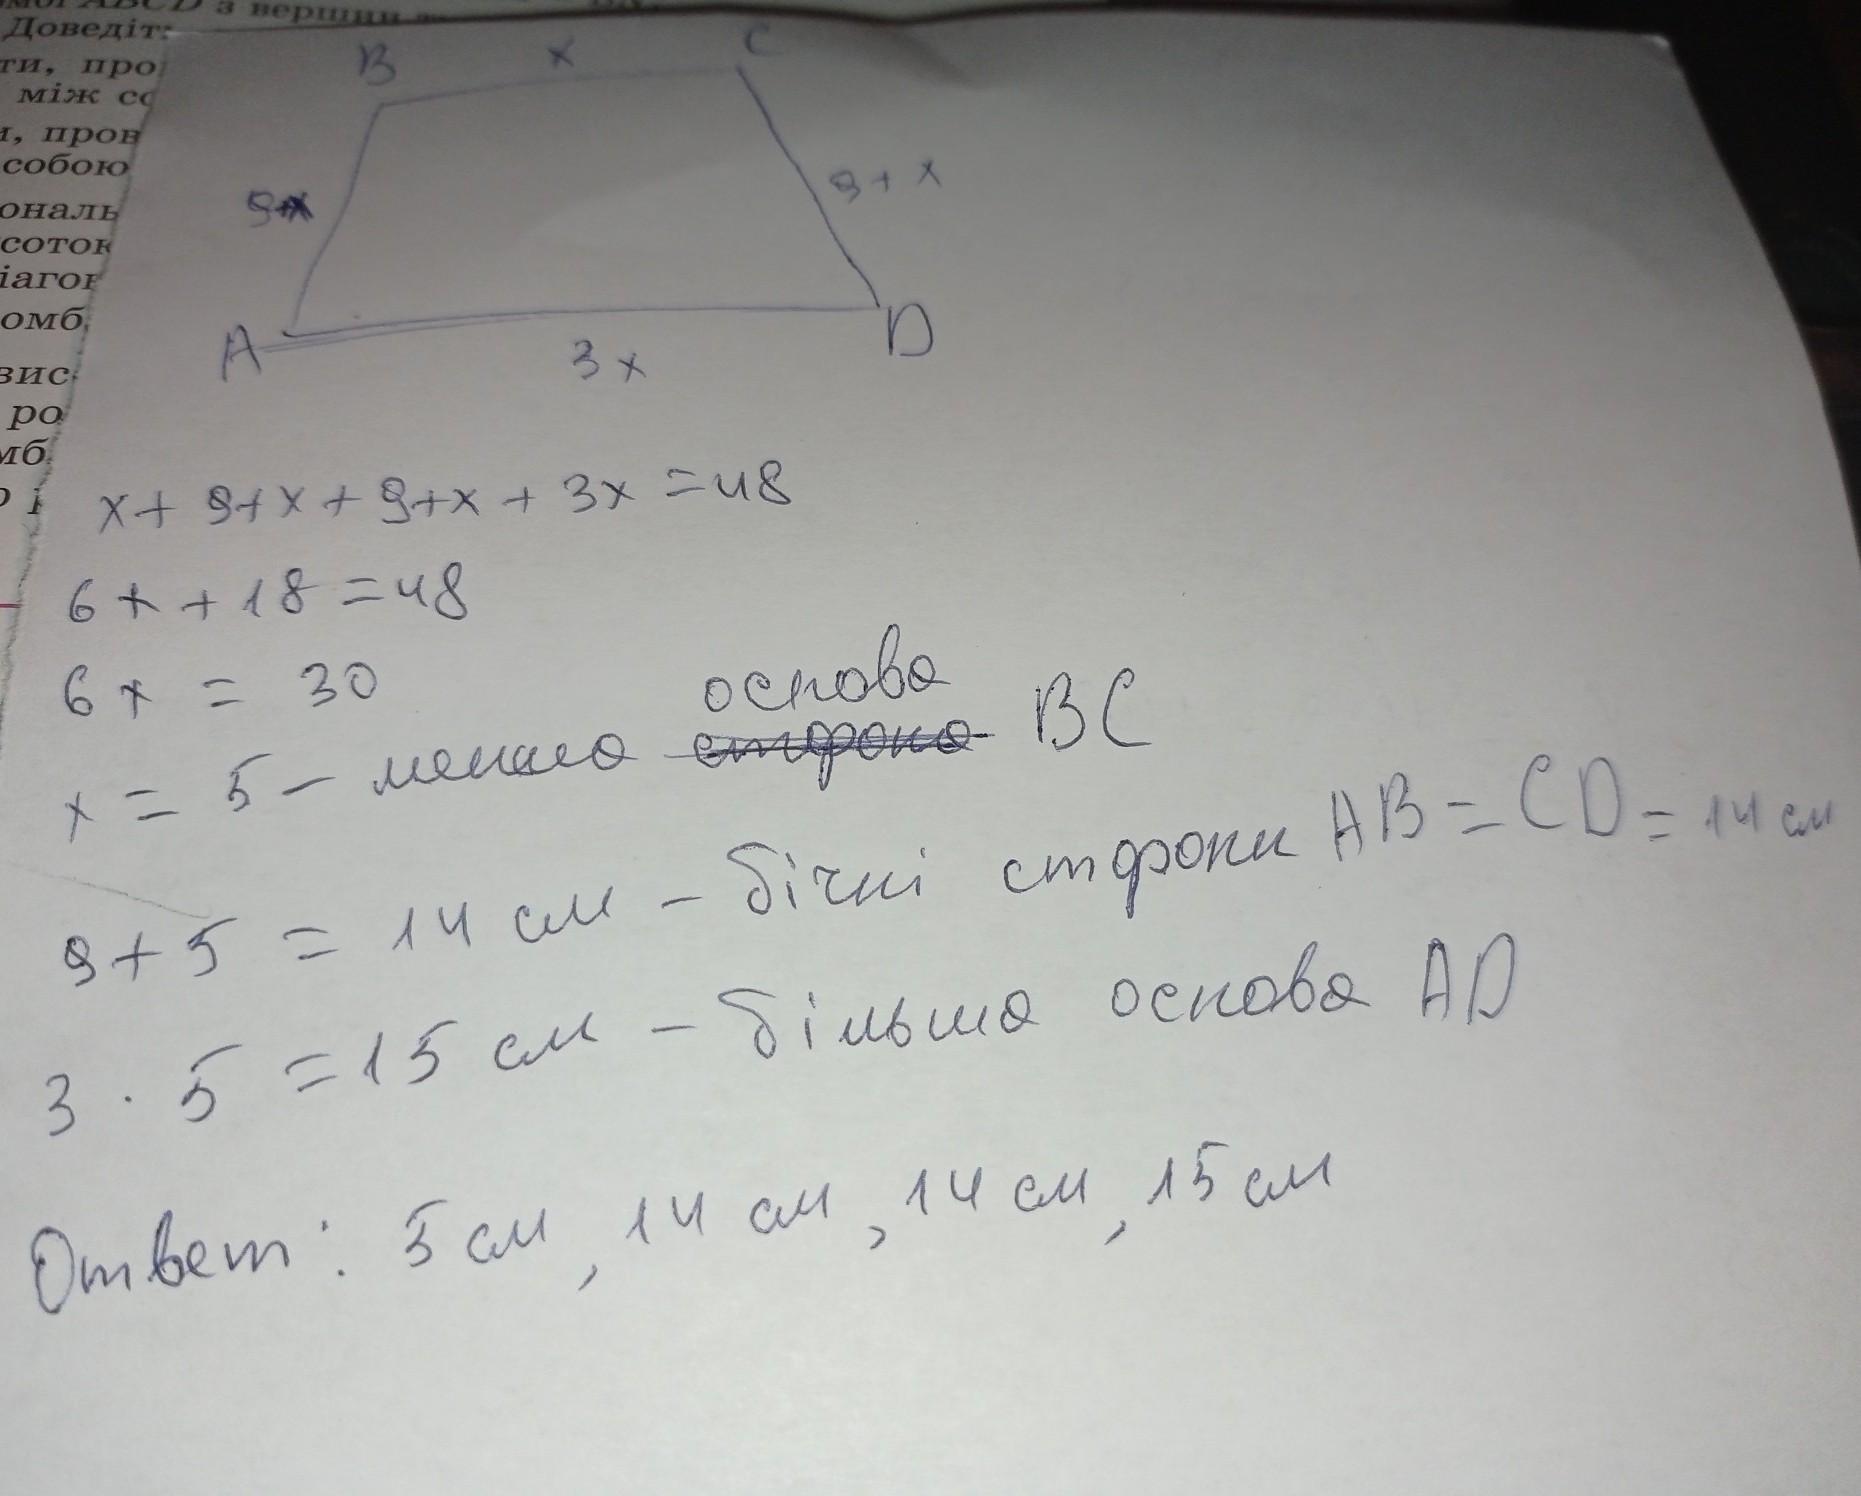 з вершин
Доведіт
ти, про
між со
и, пров
собою
ональ
соток
іагон
омб
вис
ро
мб
B x C
9+x 9+x
A 3x D
x + 9+x + 9+x + 3x = 48
6x + 18 = 48
6x = 30
x = 5 - менша основа BC
9 + 5 = 14 см - бічні сторони AB = CD = 14 см
3 · 5 = 15 см - більша основа AD
Ответ: 5 см, 14 см, 14 см, 15 см